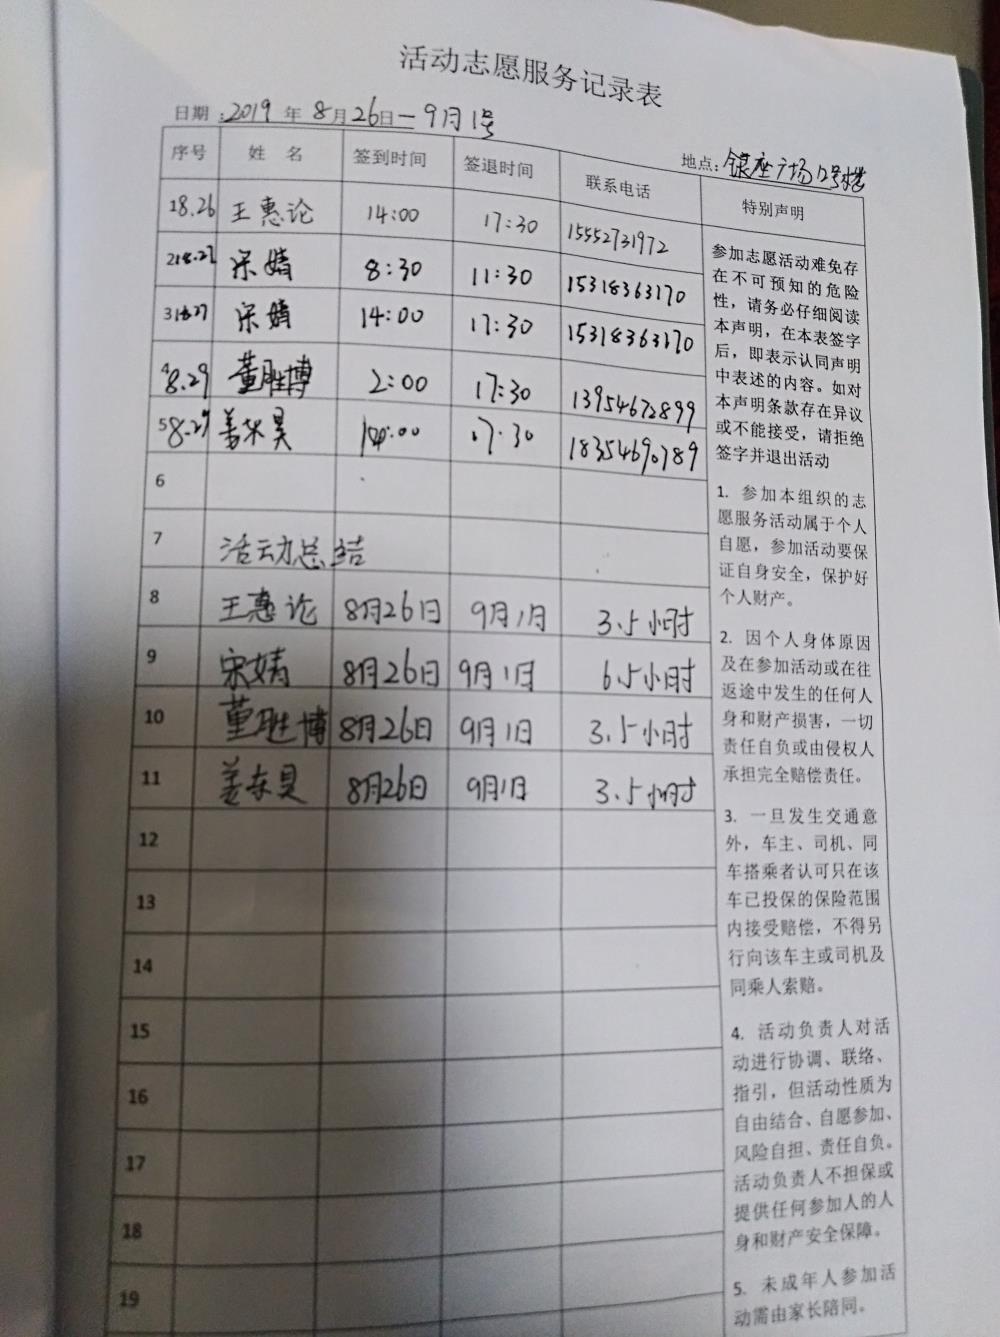 活动志愿服务记录表
日期:2019年8月26日—9月1号
地点:银座广场12号楼
序号 姓 名 签到时间 签退时间 联系电话 特别声明
1 8.26 王惠论 14:00 17:30 15552731972
2 8.27 宋婧 8:30 11:30 15318363170
3 8.27 宋婧 14:00 17:30 15318363170
4 8.29 董胜博 2:00 17:30 13954672899
5 8.29 姜东昊 14:00 17:30 18354690789
6
7 活动总结
8 王惠论 8月26日 9月1日 3.5小时
9 宋婧 8月26日 9月1日 6.5小时
10 董胜博 8月26日 9月1日 3.5小时
11 姜东昊 8月26日 9月1日 3.5小时
12
13
14
15
16
17
18
19
参加志愿活动难免存
在不可预知的危险
性，请务必仔细阅读
本声明，在本表签字
后，即表示认同声明
中表述的内容。如对
本声明条款存在异议
或不能接受，请拒绝
签字并退出活动
1. 参加本组织的志
愿服务活动属于个人
自愿，参加活动要保
证自身安全，保护好
个人财产。
2. 因个人身体原因
及在参加活动或在往
返途中发生的任何人
身和财产损害，一切
责任自负或由侵权人
承担完全赔偿责任。
3. 一旦发生交通意
外，车主、司机、同
车搭乘者认可只在该
车已投保的保险范围
内接受赔偿，不得另
行向该车主或司机及
同乘人索赔。
4. 活动负责人对活
动进行协调、联络、
指引，但活动性质为
自由结合、自愿参加、
风险自担、责任自负。
活动负责人不担保或
提供任何参加人的人
身和财产安全保障。
5. 未成年人参加活
动需由家长陪同。